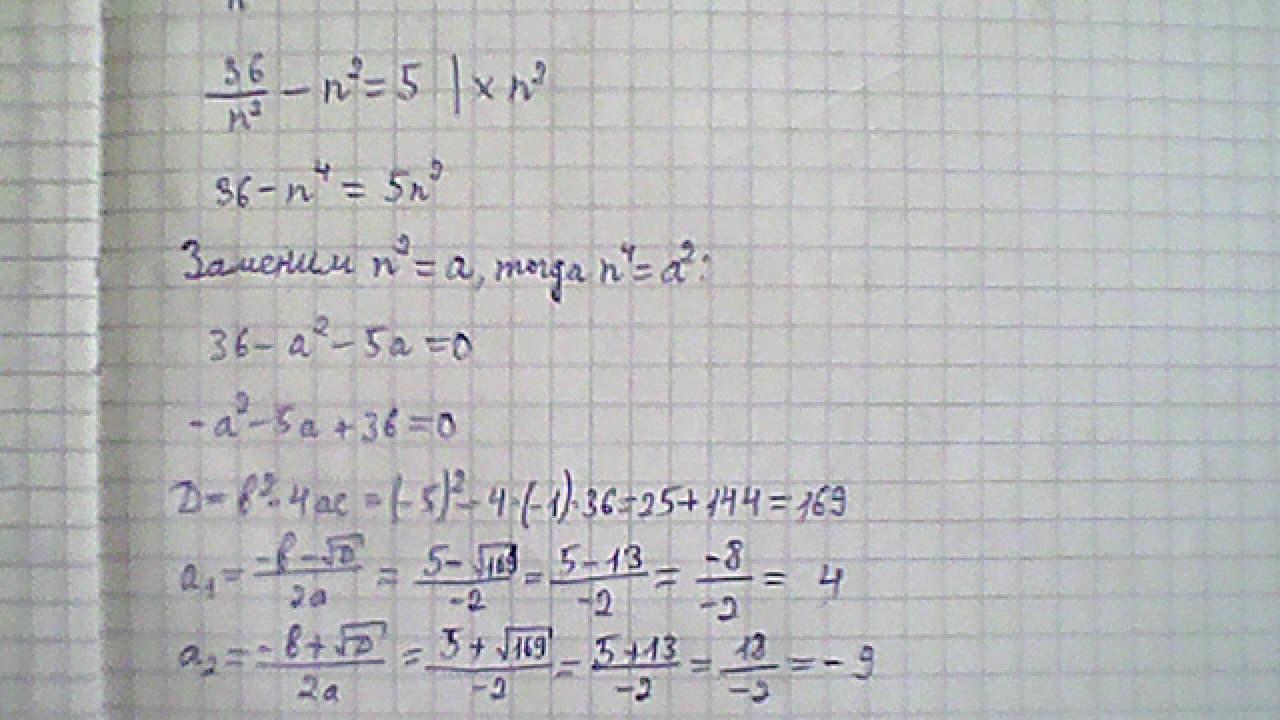 36/n² - n² = 5 | × n²
36 - n⁴ = 5n²
Заменим n² = a, тогда n⁴ = a²:
36 - a² - 5a = 0
-a² - 5a + 36 = 0
D = b² - 4ac = (-5)² - 4·(-1)·36 = 25 + 144 = 169
a₁ = (-b - √D)/2a = (5 - √169)/-2 = (5 - 13)/-2 = -8/-2 = 4
a₂ = (-b + √D)/2a = (5 + √169)/-2 = (5 + 13)/-2 = 18/-2 = -9